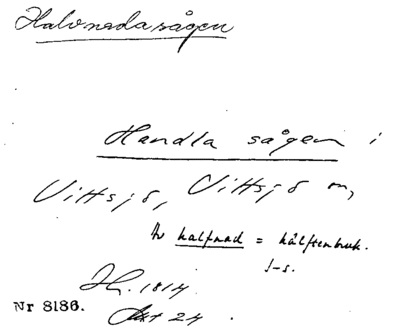 Halvnadasågen
Handla sågen i
Vittsjö, Vittsjö sn,
Av halfnad = hälftenbruk.
J-s.
Hm. 1814
Akt 24.
Nr 8186.